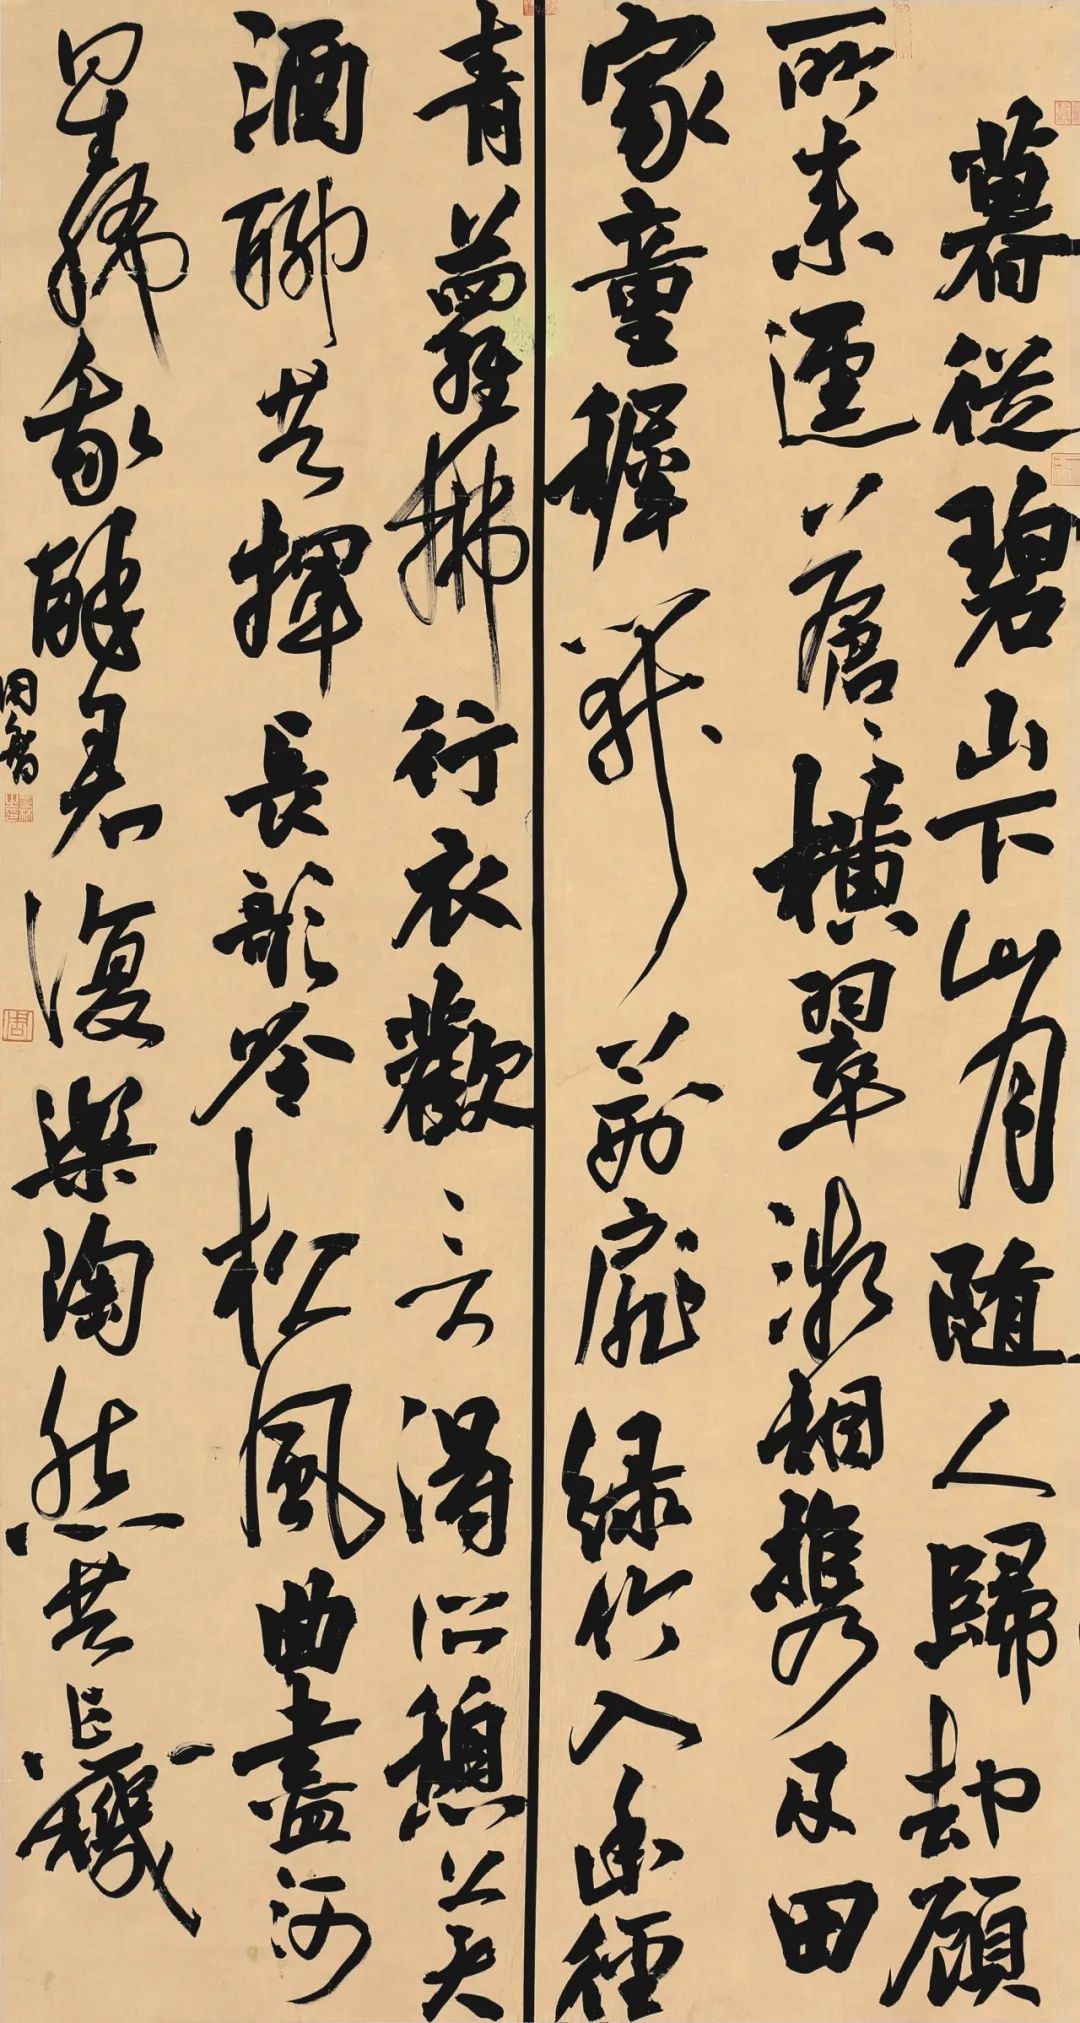 暮從碧山下山月随人歸却顧
所来逕蒼〻橫翠微相攜及田
家童稚開荊扉緑竹入幽徑
青蘿拂行衣歡言得所憩美
酒聊共揮長歌吟松風曲盡河
星稀我醉君復樂陶然共忘機
周